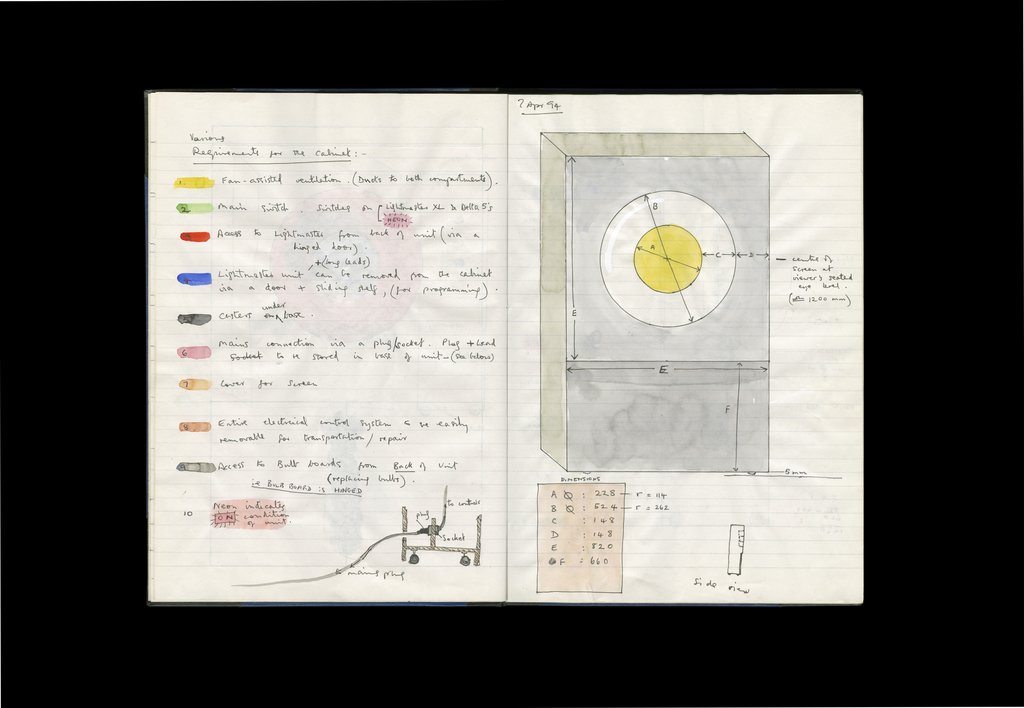 Various
Requirements for the cabinet:-
1. Fan-assisted ventilation. (Ducts to both compartments).
2 Main switch. Switches on Lightmaster XL & Delta 5's
NEON
3 Access to Lightmaster from back of unit (via a
hinged door).
+ (long leads)
4 Lightmaster unit can be removed from the cabinet
via a door + sliding shelf, (for programming).
under
5 Casters on base.
6 Mains connection via a plug/socket. Plug + Lead
Socket to be stored in base of unit - (see below)
7 Cover for screen
8 Entire electrical control system to be easily
removable for transportation/repair
9 Access to Bulb boards from Back of unit
(replacing bulbs).
ie BULB BOARD IS HINGED
10 Neon indicates
ON condition
of unit.
to controls
plug
Socket
mains plug
? Apr 94
B
A
C
D
E
E
F
centre of
screen at
viewer's seated
eye level.
(1200 mm)
5mm
DIMENSIONS
A Ø : 228 — r = 114
B Ø : 524 — r = 262
C : 148
D : 148
E : 820
F : 660
Side view